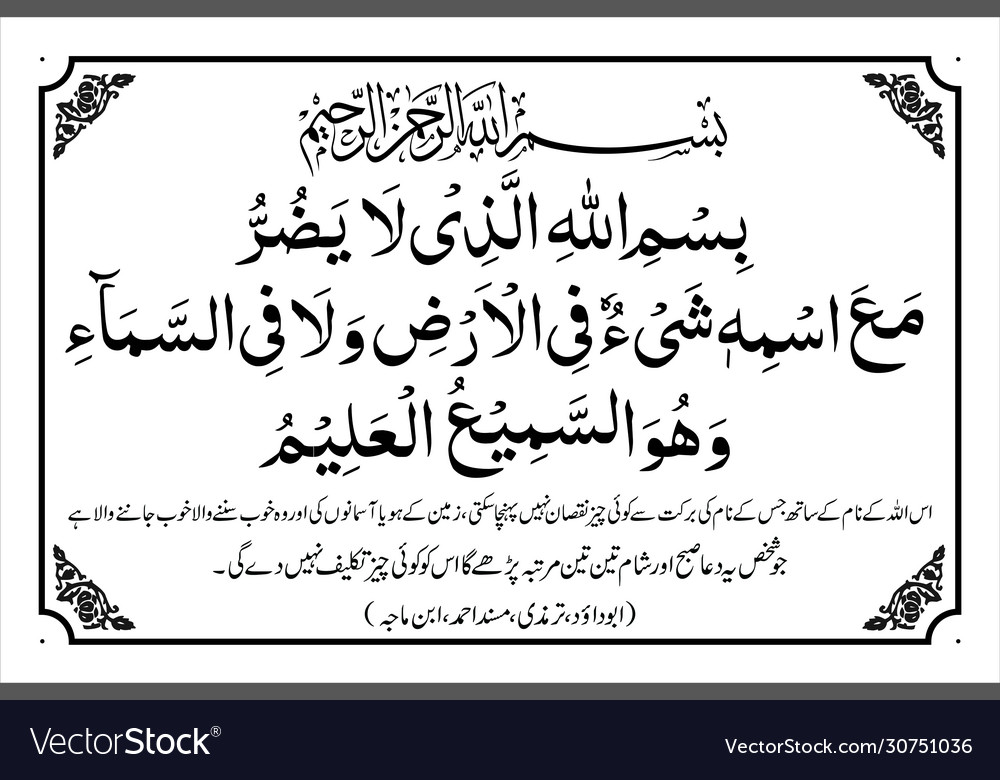 بسم الله الرحمن الرحيم
بِسْمِ اللّٰهِ الَّذِیْ لَا یَضُرُّ
مَعَ اسْمِهٖ شَیْءٌ فِی الْاَرْضِ وَلَا فِی السَّمَآءِ
وَهُوَ السَّمِیْعُ الْعَلِیْمُ
اس اللہ کے نام کے ساتھ جس کے نام کی برکت سے کوئی چیز نقصان نہیں پہنچا سکتی، زمین کے ہو یا آسمانوں کی اور وہ خوب سننے والا خوب جاننے والا ہے
جو شخص یہ دعا صبح اور شام تین تین مرتبہ پڑھے گا اس کو کوئی چیز تکلیف نہیں دے گی۔
(ابوداؤد، ترمذی، مسند احمد، ابن ماجہ)
VectorStock® VectorStock.com/30751036